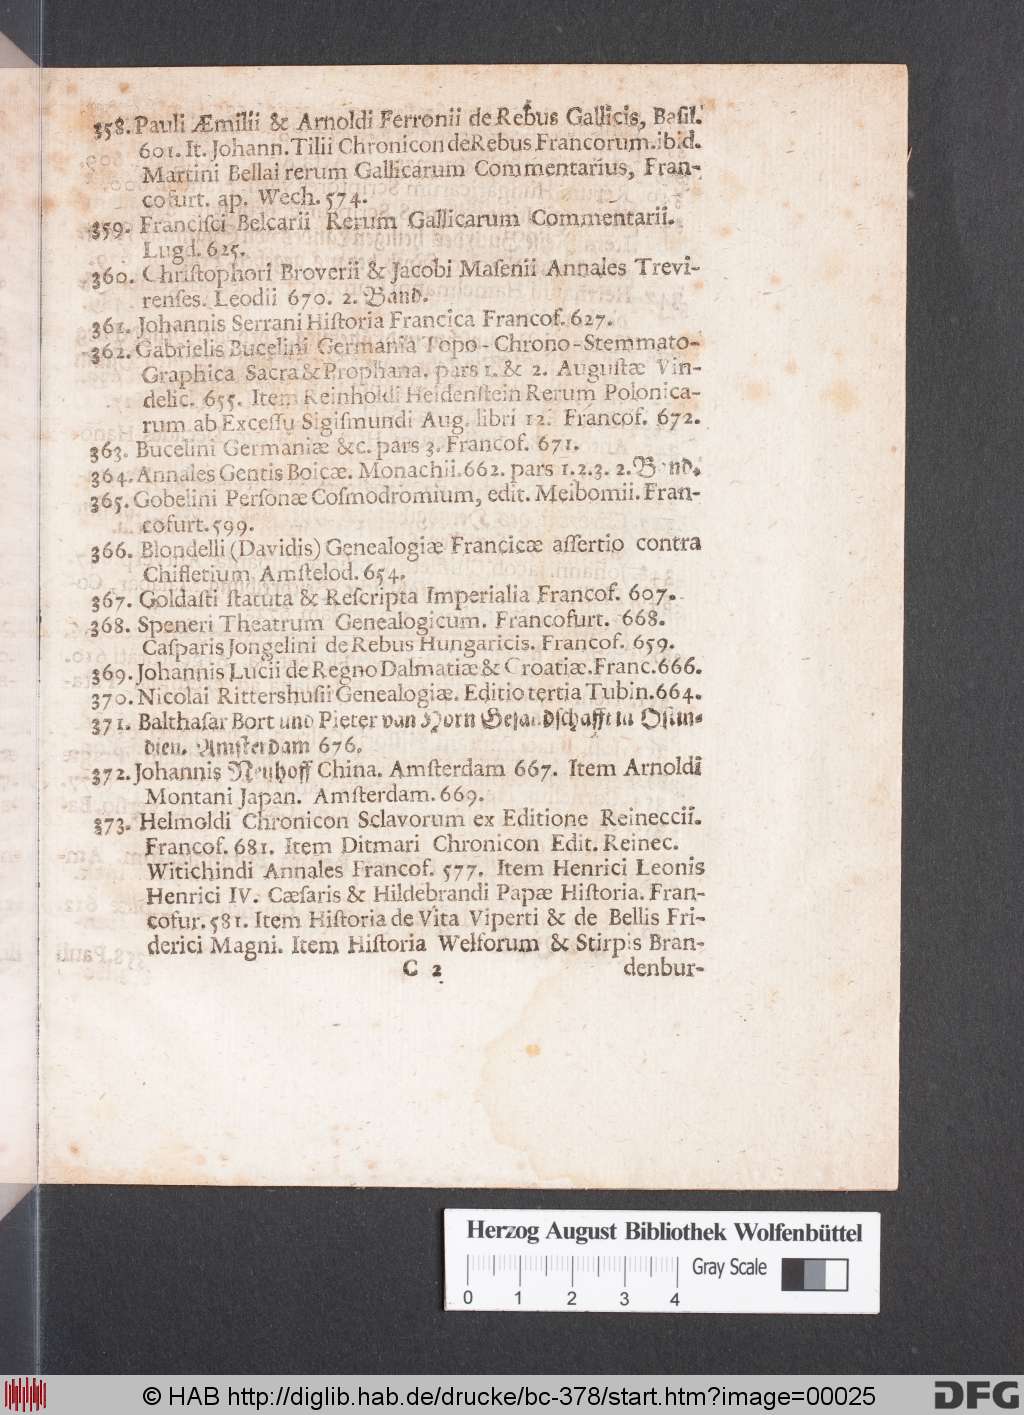 358. Pauli Æmilii & Arnoldi Ferronii de Rebus Gallicis, Basil.
601. It. Johann. Tilii Chronicon de Rebus Francorum. ibid.
Martini Bellai rerum Gallicarum Commentarius, Fran-
cofurt. ap. Wech. 574.
359. Francisci Belcarii Rerum Gallicarum Commentarii.
Lugd. 625.
360. Christophori Broverii & Jacobi Masenii Annales Trevi-
renses. Leodii 670. 2. Band.
361. Johannis Serrani Historia Francica Francof. 627.
362. Gabrielis Bucelini Germania Topo-Chrono-Stemmato-
Graphica Sacra & Prophana. pars 1. & 2. Augustæ Vin-
delic. 655. Item Reinholdi Heidenstein Rerum Polonica-
rum ab Excessu Sigismundi Aug. libri 12. Francof. 672.
363. Bucelini Germaniæ &c. pars 3. Francof. 671.
364. Annales Gentis Boicæ. Monachii. 662. pars 1.2.3. 2. Band.
365. Gobelini Personæ Cosmodromium, edit. Meibomii. Fran-
cofurt. 599.
366. Blondelli (Davidis) Genealogiæ Francicæ assertio contra
Chifletium Amstelod. 654.
367. Goldasti statuta & Rescripta Imperialia Francof. 607.
368. Speneri Theatrum Genealogicum. Francofurt. 668.
Casparis Jongelini de Rebus Hungaricis. Francof. 659.
369. Johannis Lucii de Regno Dalmatiæ & Croatiæ. Franc. 666.
370. Nicolai Rittershusii Genealogiæ. Editio tertia Tubin. 664.
371. Balthasar Bort und Pieter van Horn Gesandschafft in Ostin-
dien. Amsterdam 676.
372. Johannis Neuhoff China. Amsterdam 667. Item Arnoldi
Montani Japan. Amsterdam. 669.
373. Helmoldi Chronicon Sclavorum ex Editione Reineccii.
Francof. 681. Item Ditmari Chronicon Edit. Reinec.
Witichindi Annales Francof. 577. Item Henrici Leonis
Henrici IV. Cæsaris & Hildebrandi Papæ Historia. Fran-
cofur. 581. Item Historia de Vita Viperti & de Bellis Fri-
derici Magni. Item Historia Welforum & Stirpis Bran-
C 2 denbur-
Herzog August Bibliothek Wolfenbüttel
Gray Scale
0 1 2 3 4
© HAB http://diglib.hab.de/drucke/bc-378/start.htm?image=00025
DFG